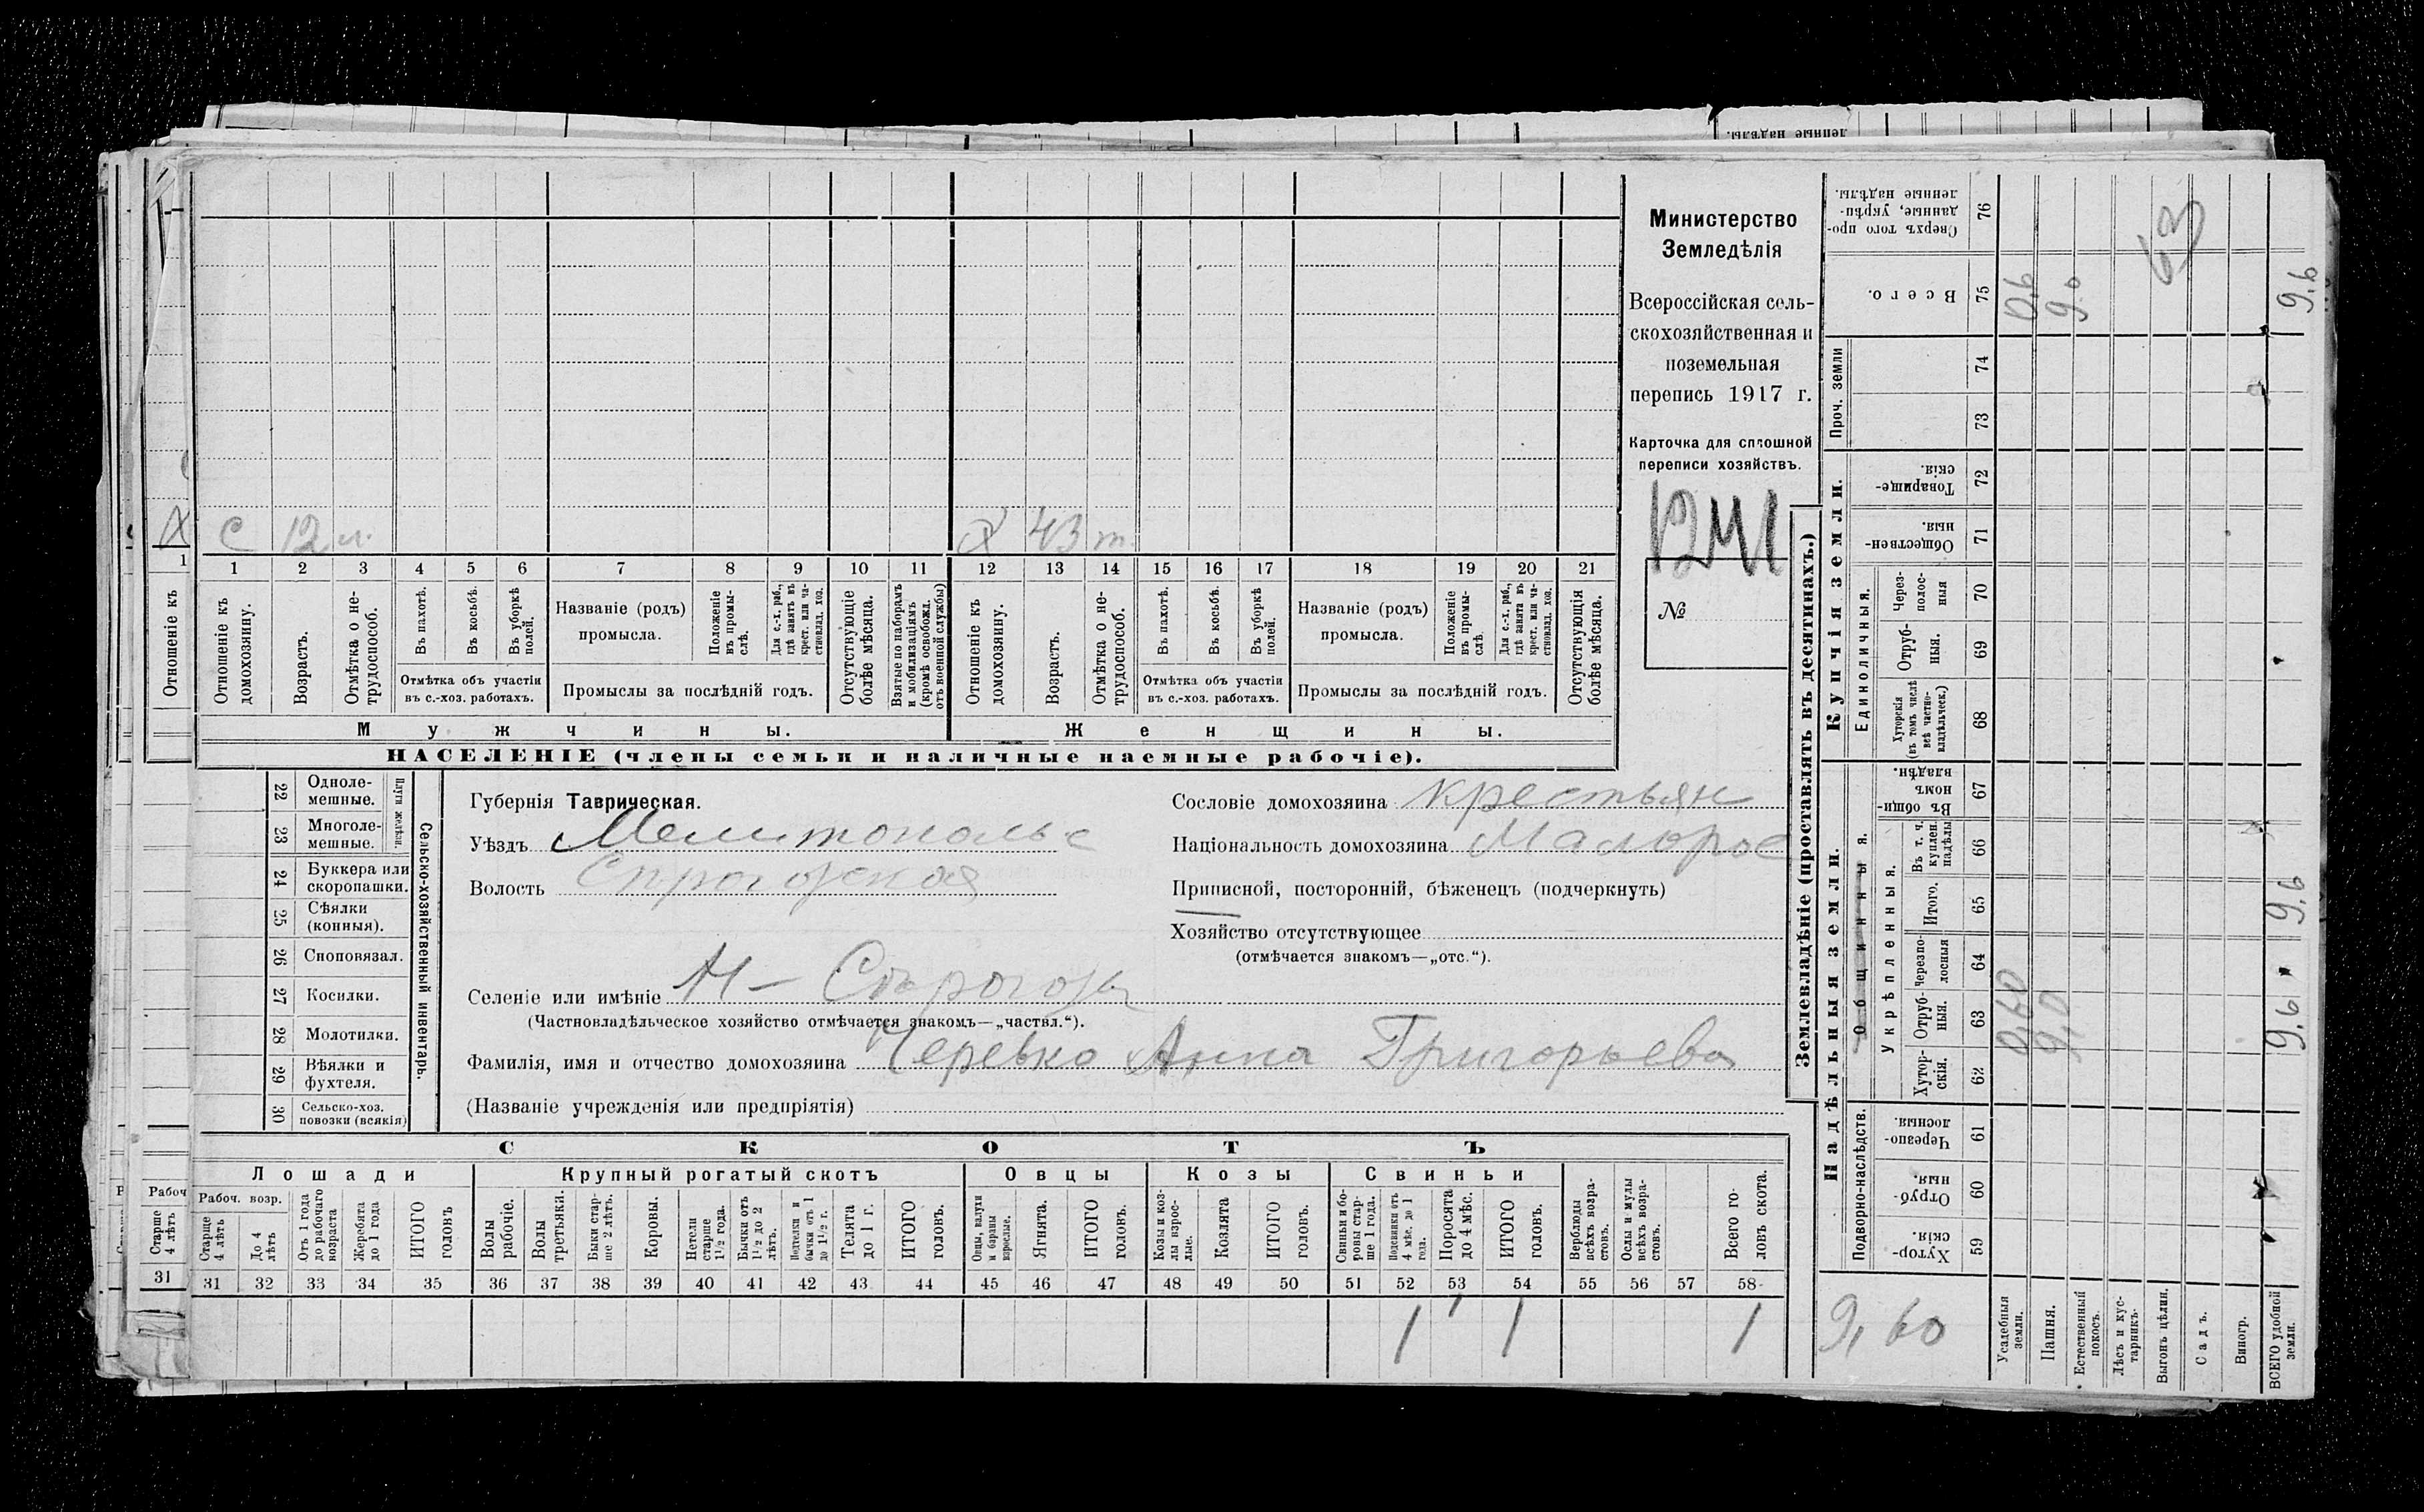 Министерство
Земледѣлія
Всероссійская сель-
скохозяйственная и
поземельная
перепись 1917 г.
Карточка для сплошной
переписи хозяйствъ.
1241
№
С 12 н. Х 43 т.
1 2 3 4 5 6 7 8 9 10 11 12 13 14 15 16 17 18 19 20 21
Отношеніе къ домохозяину.
Возрастъ.
Отмѣтка о не-трудоспособ.
Въ пахотѣ.
Въ косьбѣ.
Въ уборкѣ полей.
Отмѣтка объ участіи
въ с.-хоз. работахъ.
Названіе (родъ)
промысла.
Положеніе въ промы-слѣ.
Для с.-х. раб., гдѣ занятъ въ крест. или ча-стновлад. хоз.
Промыслы за послѣдній годъ.
Отсутствующіе болѣе мѣсяца.
Взятые по наборамъ и мобилизаціямъ (кромѣ освобожд. отъ военной службы)
Отношеніе къ домохозяину.
Возрастъ.
Отмѣтка о не-трудоспособ.
Въ пахотѣ.
Въ косьбѣ.
Въ уборкѣ полей.
Отмѣтка объ участіи
въ с.-хоз. работахъ.
Названіе (родъ)
промысла.
Положеніе въ промы-слѣ.
Для с.-х. раб., гдѣ занята въ крест. или ча-стновлад. хоз.
Промыслы за послѣдній годъ.
Отсутствующія болѣе мѣсяца.
Мужчины.
Женщины.
НАСЕЛЕНІЕ (члены семьи и наличные наемные рабочіе).
22 Одноле-мешные.
23 Многоле-мешные.
Плуги желѣзн.
24 Буккера или скоропашки.
25 Сѣялки (конныя).
26 Сноповязал.
27 Косилки.
28 Молотилки.
29 Вѣялки и фухтеля.
30 Сельско-хоз. повозки (всякія)
Сельско-хозяйственный инвентарь.
Губернія Таврическая.
Уѣздъ Мелитопольс
Волость
Сословіе домохозяина крестьян
Національность домохозяина Малорос
Приписной, посторонній, бѣженецъ (подчеркнуть)
Хозяйство отсутствующее
(отмѣчается знакомъ—„отс.“).
Селеніе или имѣніе Н-
(Частновладѣльческое хозяйство отмѣчается знакомъ—„частвл.“).
Фамилія, имя и отчество домохозяина Черевко Анна Григорьева
(Названіе учрежденія или предпріятія)
СКОТЪ
Лошади
Крупный рогатый скотъ
Овцы
Козы
Свиньи
Рабоч. возр.
Старше 4 лѣтъ
До 4 лѣтъ
Отъ 1 года до рабочаго возраста
Жеребята до 1 года
ИТОГО головъ
Волы рабочіе.
Волы третьяки.
Быки стар-ше 2 лѣтъ.
Коровы.
Нетели старше 1½ года.
Бычки отъ 1½ до 2 лѣтъ.
Подтелки и бычки отъ 1 до 1½ г.
Телята до 1 г.
ИТОГО головъ.
Овцы, валухи и бараны взрослые.
Ягнята.
ИТОГО головъ.
Козы и коз-лы взрос-лые.
Козлята
ИТОГО головъ.
Свиньи и бо-ровы стар-ше 1 года.
Подсвинки отъ 4 мѣс. до 1 года.
Поросята до 4 мѣс.
ИТОГО головъ.
Верблюды всѣхъ возра-стовъ.
Ослы и мулы всѣхъ возра-стовъ.
Всего го-ловъ скота.
31 32 33 34 35 36 37 38 39 40 41 42 43 44 45 46 47 48 49 50 51 52 53 54 55 56 57 58
1 1 1
Землевладѣніе (проставлять въ десятинахъ.)
Надѣльныя земли.
Купчія земли.
Проч. земли
Подворно-наслѣдств.
Общинныя.
Укрѣпленныя.
Единоличныя.
Хутор-скія. 59
Отруб-ныя. 60
Черезпо-лосныя. 61
Хутор-скія. 62
Отруб-ныя. 63
Черезпо-лосныя 64
Итого. 65
Въ т. ч. куплен. надѣлы 66
Въ общин-номъ владѣн. 67
Хуторскія (въ томъ числѣ всѣ частно-владѣльческ.) 68
Отруб-ныя. 69
Через-полос-ныя 70
Обществен-ныя. 71
Товарище-скія. 72
73
74
Всего. 75
Сверхъ того про-данные, укрѣп-ленные надѣлы. 76
Усадебныя земли. 0,60 0,6
Пашня. 9,0 9,0
Естественный покосъ.
Лѣсъ и кус-тарникъ.
Выгонъ цѣлин.
Садъ.
Виногр.
ВСЕГО удобной земли. 9,6 9,6 9,6
63
9,60